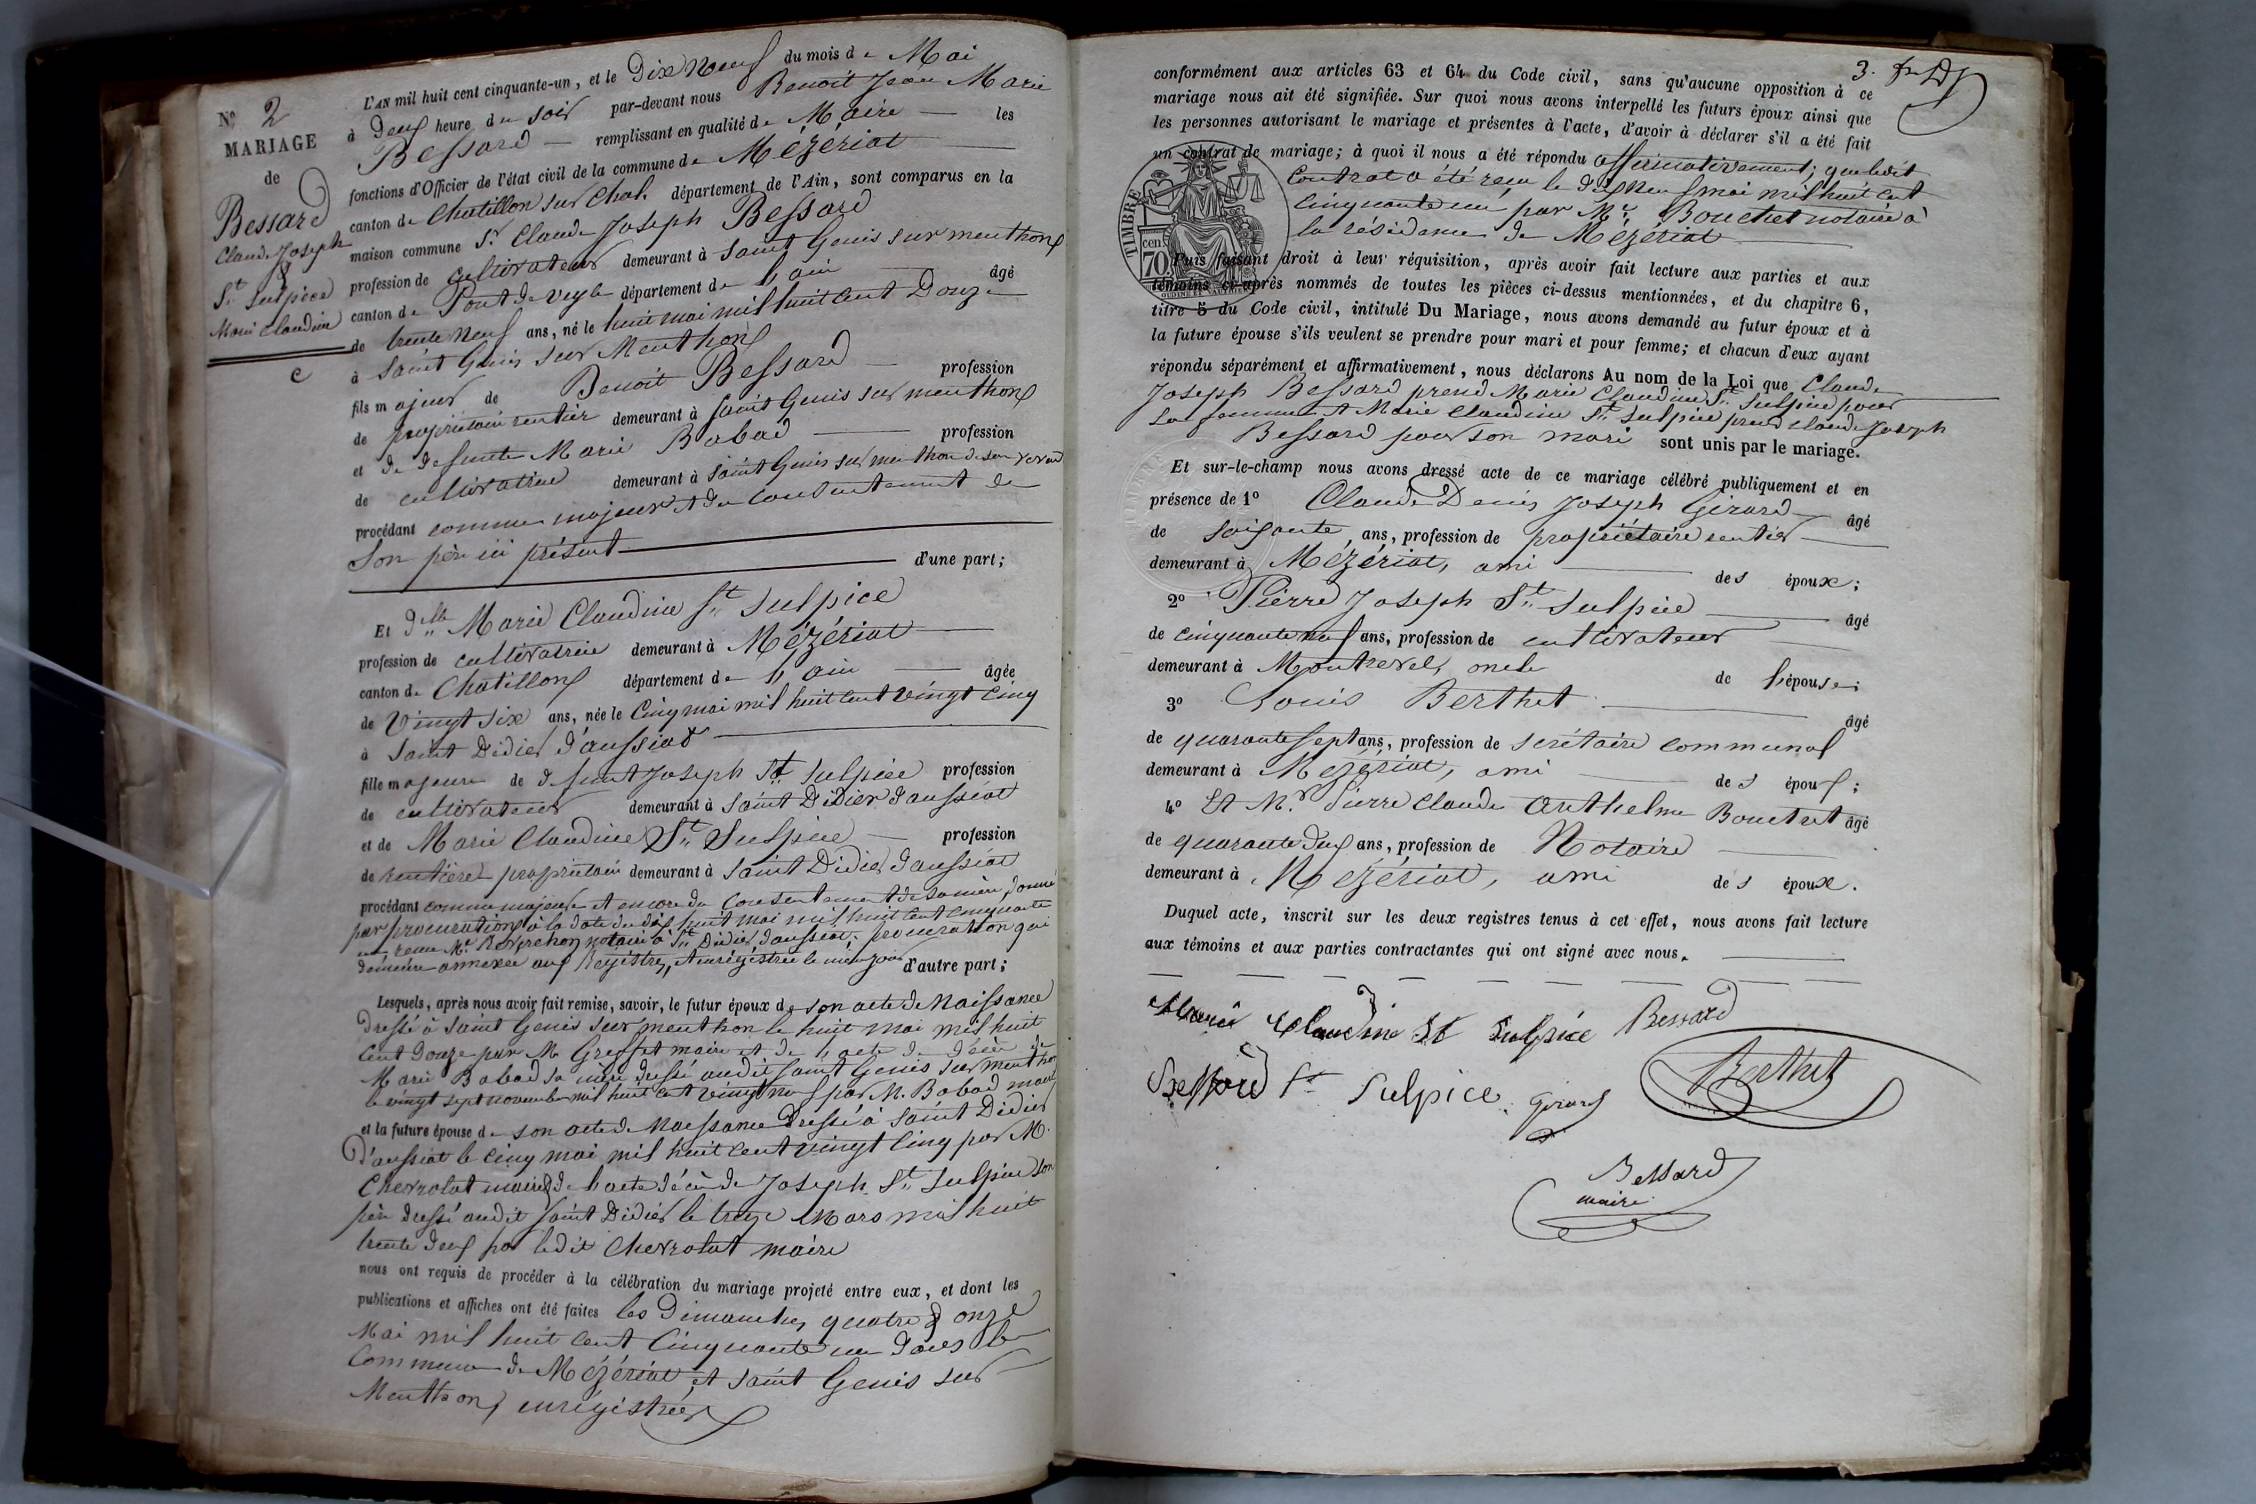 Nº 2
MARIAGE
de
Bessard
Claude Joseph
&
St Sulpice
Marie Claudine
c
L'AN mil huit cent cinquante-un, et le Dix Neuf du mois de Mai
à deux heure du soir par-devant nous Benoit Jean Marie
Bessard remplissant en qualité de Maire les
fonctions d'Officier de l'état civil de la commune de Mézériat
canton de Chatillon sur Chal. département de l'Ain, sont comparus en la
maison commune Sr Claude Joseph Bessard
profession de cultivateur demeurant à Saint Genis sur menthon
canton de Pont de veyle département de l'ain âgé
de trente neuf ans, né le huit mai mil huit cent Douze
à Saint Genis sur Menthon
fils majeur de Benoit Bessard profession
de propriétaire rentier demeurant à Saint Genis sur menthon
et de defunte Marie Babad profession
de cultivatrice demeurant à Saint Genis sur menthon de son vivant
procédant comme majeur et du consentement de
Son père ici présent d'une part;
Et dlle Marie Claudine St Sulpice
profession de cultivatrice demeurant à Mézériat
canton de Chatillon département de l'ain âgée
de Vingt six ans, née le Cinq mai mil huit cent vingt cinq
à Saint Didier d'aussiat
fille majeure de defunt Joseph St Sulpice profession
de cultivateur demeurant à Saint Didier d'aussiat
et de Marie Claudine St Sulpice profession
de rentière propriétaire demeurant à Saint Didier d'aussiat
procédant comme majeure et encore du Consentement de sa mère, donné
par procuration à la date du dix huit mai mil huit cent cinquante
un reçue Me notaire à St Didier d'aussiat, procuration qui
demeure annexée aux Registres, et enrégistrée le même jour d'autre part;
Lesquels, après nous avoir fait remise, savoir, le futur époux de son acte de Naissance
Dressé à Saint Genis sur menthon le huit mai mil huit
Cent douze par M. Greffet maire et de l'acte de décès de
Marie Babad sa mère dressé audit Saint Genis sur menthon
le vingt sept novembre mil huit cent vingt neuf par M. Babad maire
et la future épouse de son acte de Naissance Dressé à Saint Didier
D'aussiat le cinq mai mil huit cent vingt Cinq par M.
Chevrolat maire & de l'acte décès de Joseph St Sulpice son
père dressé audit Saint Didier le treize Mars mil huit
trente deux par ledit Chevrolat maire
nous ont requis de procéder à la célébration du mariage projeté entre eux, et dont les
publications et affiches ont été faites les Dimanches quatre & onze
Mai mil huit cent Cinquante un dans les
Commune de Mézériat et Saint Genis sur
Menthon, enrégistrées
3.
conformément aux articles 63 et 64 du Code civil, sans qu'aucune opposition à ce
mariage nous ait été signifiée. Sur quoi nous avons interpellé les futurs époux ainsi que
les personnes autorisant le mariage et présentes à l'acte, d'avoir à déclarer s'il a été fait
un contrat de mariage; à quoi il nous a été répondu affirmativement; que ledit
Contrat a été reçu le dix neuf mai mil huit cent
Cinquante un par Me Bouchet notaire à
la résidence de Mézériat
TIMBRE
70 cen
OUDINÉ
Puis faisant droit à leur réquisition, après avoir fait lecture aux parties et aux
témoins ci-après nommés de toutes les pièces ci-dessus mentionnées, et du chapitre 6,
titre 5 du Code civil, intitulé Du Mariage, nous avons demandé au futur époux et à
la future épouse s'ils veulent se prendre pour mari et pour femme; et chacun d'eux ayant
répondu séparément et affirmativement, nous déclarons Au nom de la Loi que Claude
Joseph Bessard prend Marie Claudine St Sulpice pour
Sa femme et Marie Claudine St Sulpice prend Claude Joseph
Bessard pour son mari sont unis par le mariage.
Et sur-le-champ nous avons dressé acte de ce mariage célébré publiquement et en
présence de 1º Claude Denis Joseph Girard âgé
de soixante ans, profession de propriétaire rentier
demeurant à Mézériat, ami des époux;
2º Pierre Joseph St Sulpice âgé
de cinquante neuf ans, profession de cultivateur
demeurant à Montrevel, oncle de l'épouse;
3º Louis Berthet âgé
de quarante sept ans, profession de secrétaire communal
demeurant à Mézériat, ami des époux;
4º Et Mr Pierre Claude Anthelme Bouchet âgé
de quarante deux ans, profession de Notaire
demeurant à Mézériat, ami des époux.
Duquel acte, inscrit sur les deux registres tenus à cet effet, nous avons fait lecture
aux témoins et aux parties contractantes qui ont signé avec nous.
Marie Claudine St Sulpice Bessard
Bessard St Sulpice Girard Berthet
Bessard
maire